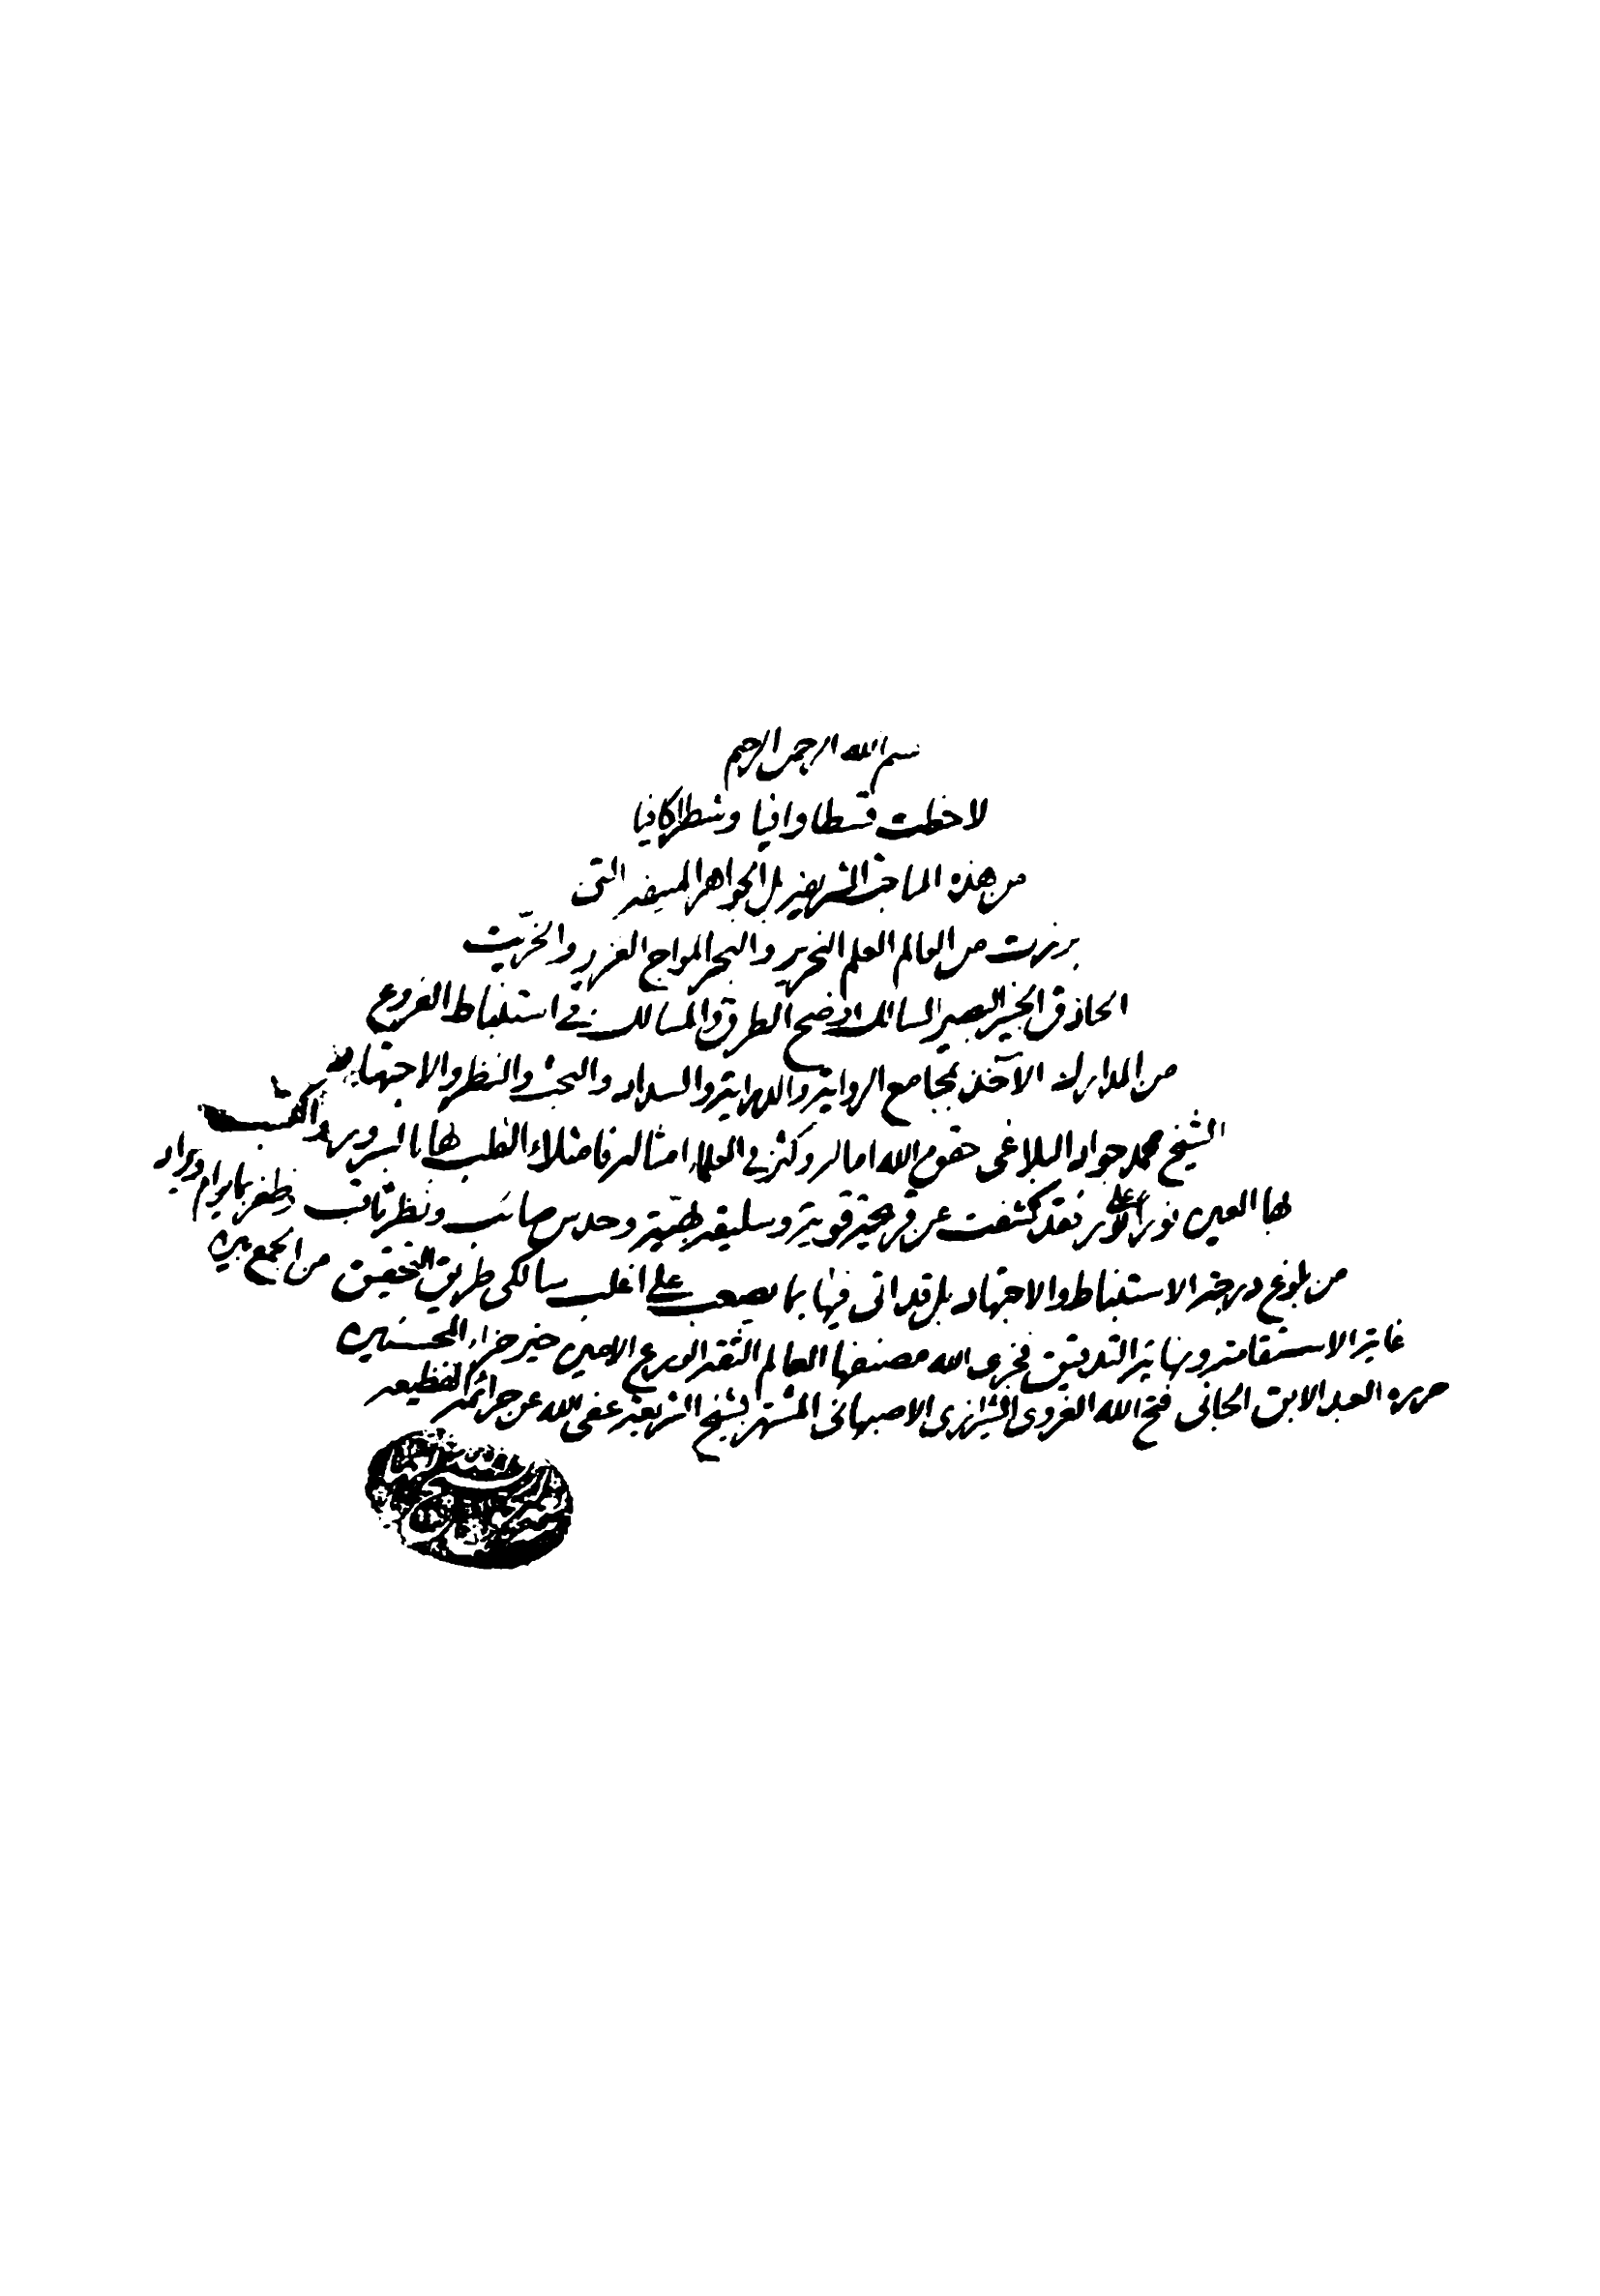 بسم الله الرحمن الرحيم
لاحظت قسطا وافيا وشطرا كافيا
من هذه المباحث الشريفة بل الجواهر المنيفة التى
برزت من العالم العلم النحرير والبحر المواج الغزير والخرّيت
الحاذق الخبير البصير السالك اوضح الطرق والمسالك فى استنباط الفروع
من المدارك الآخذ بمجامع الرواية والدراية والسداد والبحث والنظر والاجتهاد
الشيخ محمد جواد البلاغى حقق الله اماله وكثر فى العلماء امثاله فامتلاء القلب بها بالسرور واكتسب
بها العين نورا على نور فقد كشفت عن قريحة قوية وسليقة وحدس صائب ونظر ثاقب بظفر بما يرام ويراد
من بلوغ درجة الاستنباط والاجتهاد بل قد اتى فيها بما يصعب على اغلب سالكى طريق التحقيق من الجمع بين
غاية الاستقامة ونهاية التدقيق فجزى الله مصنفها العالم الثقة الورع الامين خير جزاء المحسنين
حرره العبد الابق الجانى فتح الله الغروى الشيرازى الاصبهانى المشتهر بشيخ الشريعة عفى الله عن جرائمه الفظيعه